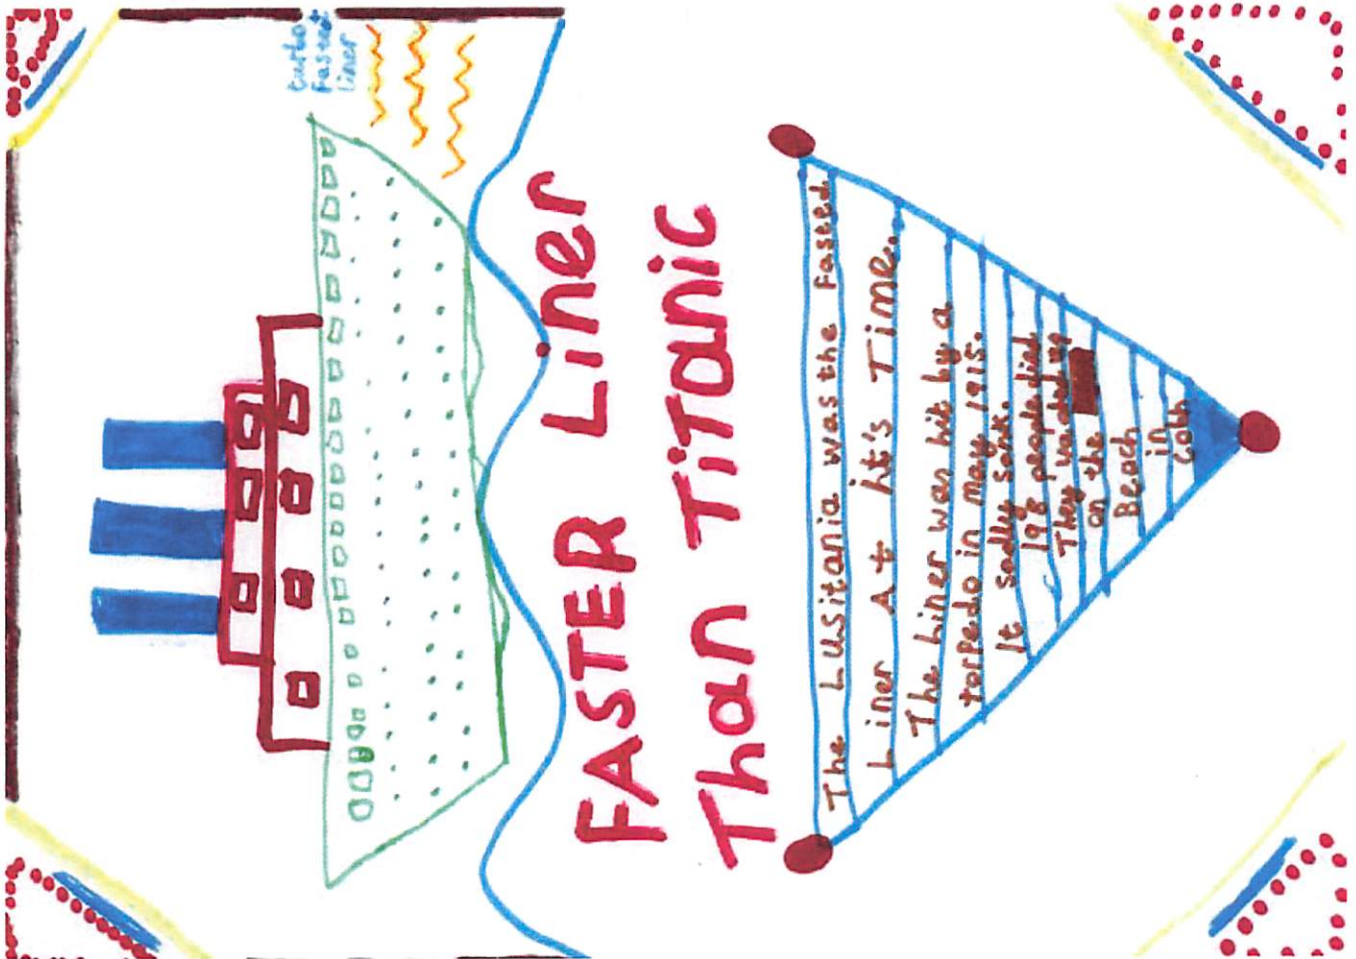 turbo
Fastest
liner
FASTER Liner
Than TiTanic
The Lusitania was the Fasted
Liner At ht's Time.
The Liner was hit by a
torpedo in may 1915.
It sadly sank.
198 people died
They washed up
on the
Beach
in
Cobh